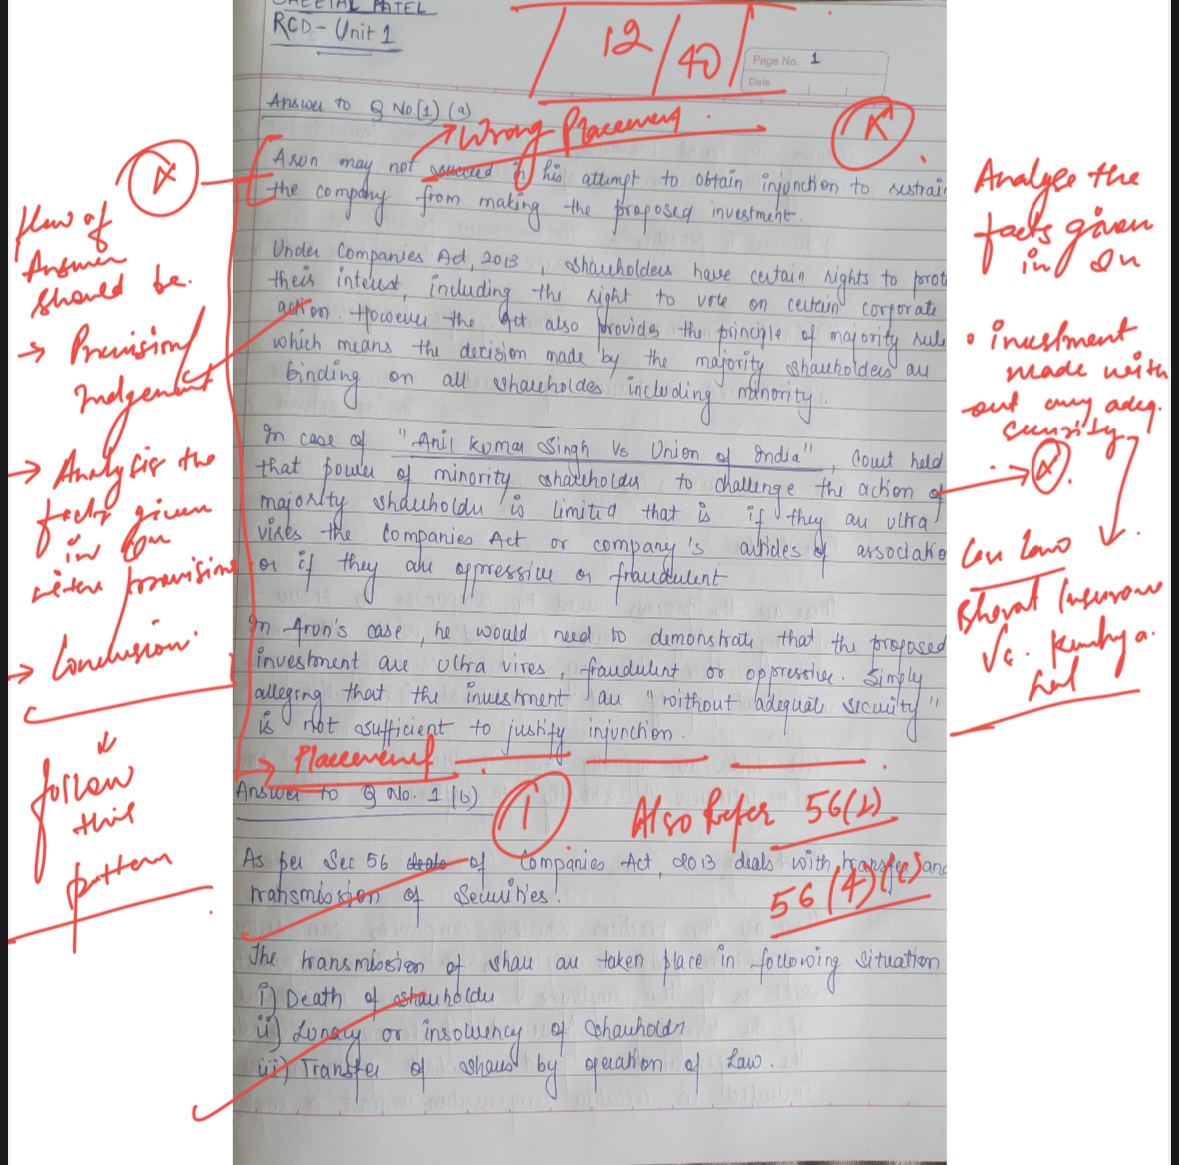 SHEETAL PATEL
RCD - Unit 1
12/40
Page No. 1
Date
Answer to Q No. (1) (a)
Wrong Placement.
Arun may not succeed in his attempt to obtain injunction to restrain
the company from making the proposed investment.
Under Companies Act, 2013, shareholders have certain rights to prot
their interest, including the right to vote on certain corporate
action. However the Act also provides the principle of majority rule
which means the decision made by the majority shareholders are
binding on all shareholders including minority.
In case of "Anil Kumar Singh Vs Union of India", Court held
that power of minority shareholder to challenge the action of
majority shareholder is limited that is if they are ultra
vires the Companies Act or company's articles of associatio
or if they are oppressive or fraudulent
In Arun's case, he would need to demonstrate that the proposed
investment are ultra vires, fraudulent or oppressive. Simply
alleging that the investment are "without adequate security"
is not sufficient to justify injunction.
Placement
Answer to Q No. 1 (b)
1
Also Refer 56(2)
56(4)(c)
As per Sec 56 deals of Companies Act, 2013 deals with transfer and
transmission of Securities.
The transmission of share are taken place in following situation
i) Death of shareholder
ii) Lunacy or insolvency of shareholder
iii) Transfer of shares by operation of Law.
flow of
Answer
should be.
→ Provision/
Judgement
→ Analysis the
facts given
in Qn
with provision
→ Conclusion.
follow
this
pattern
Analyse the
facts given
in Qn
• investment
made with
-out any adeq.
security
Case Laws
Bharat Insurance
Vs. Kanhya
Lal